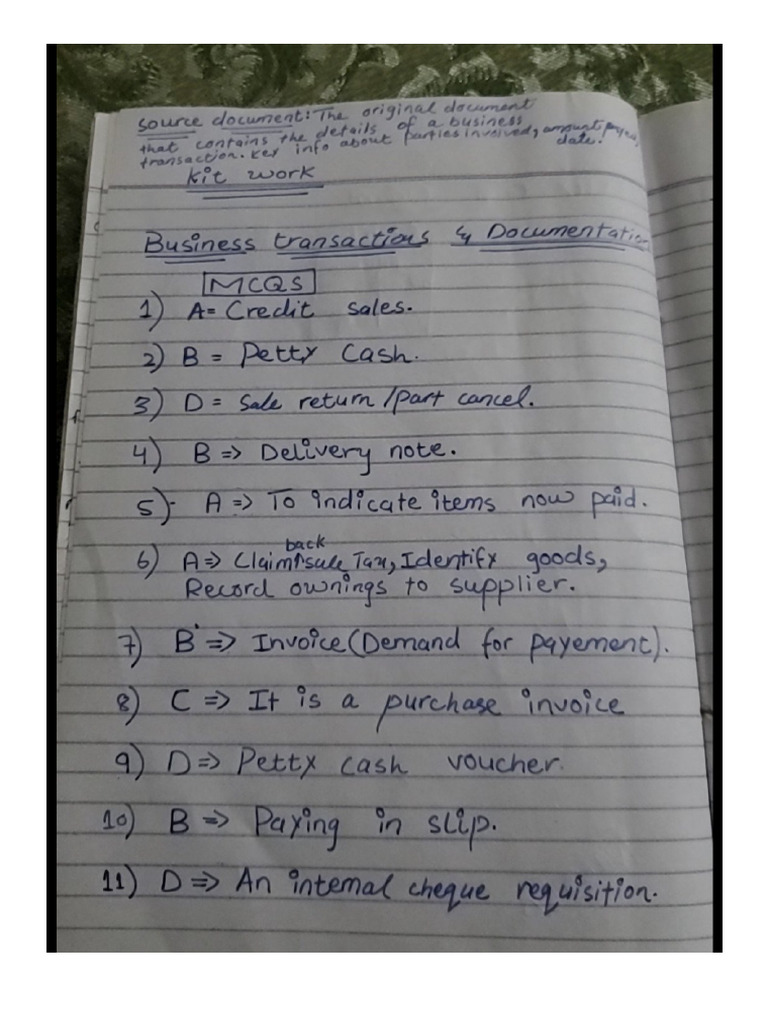 Source document: The original document
that contains the details of a business
transaction. Key info about parties involved, amount payed,
date.
Kit work
Business transactions & Documentation
MCQS
1) A= Credit sales.
2) B = Petty Cash.
3) D = Sale return /part cancel.
4) B => Delivery note.
5)- A => To indicate items now paid.
back
6) A=> Claim sale Tax, Identify goods,
Record ownings to supplier.
7) B => Invoice (Demand for payement).
8) C => It is a purchase invoice
9) D=> Petty cash voucher.
10) B => Paying in slip.
11) D => An internal cheque requisition.